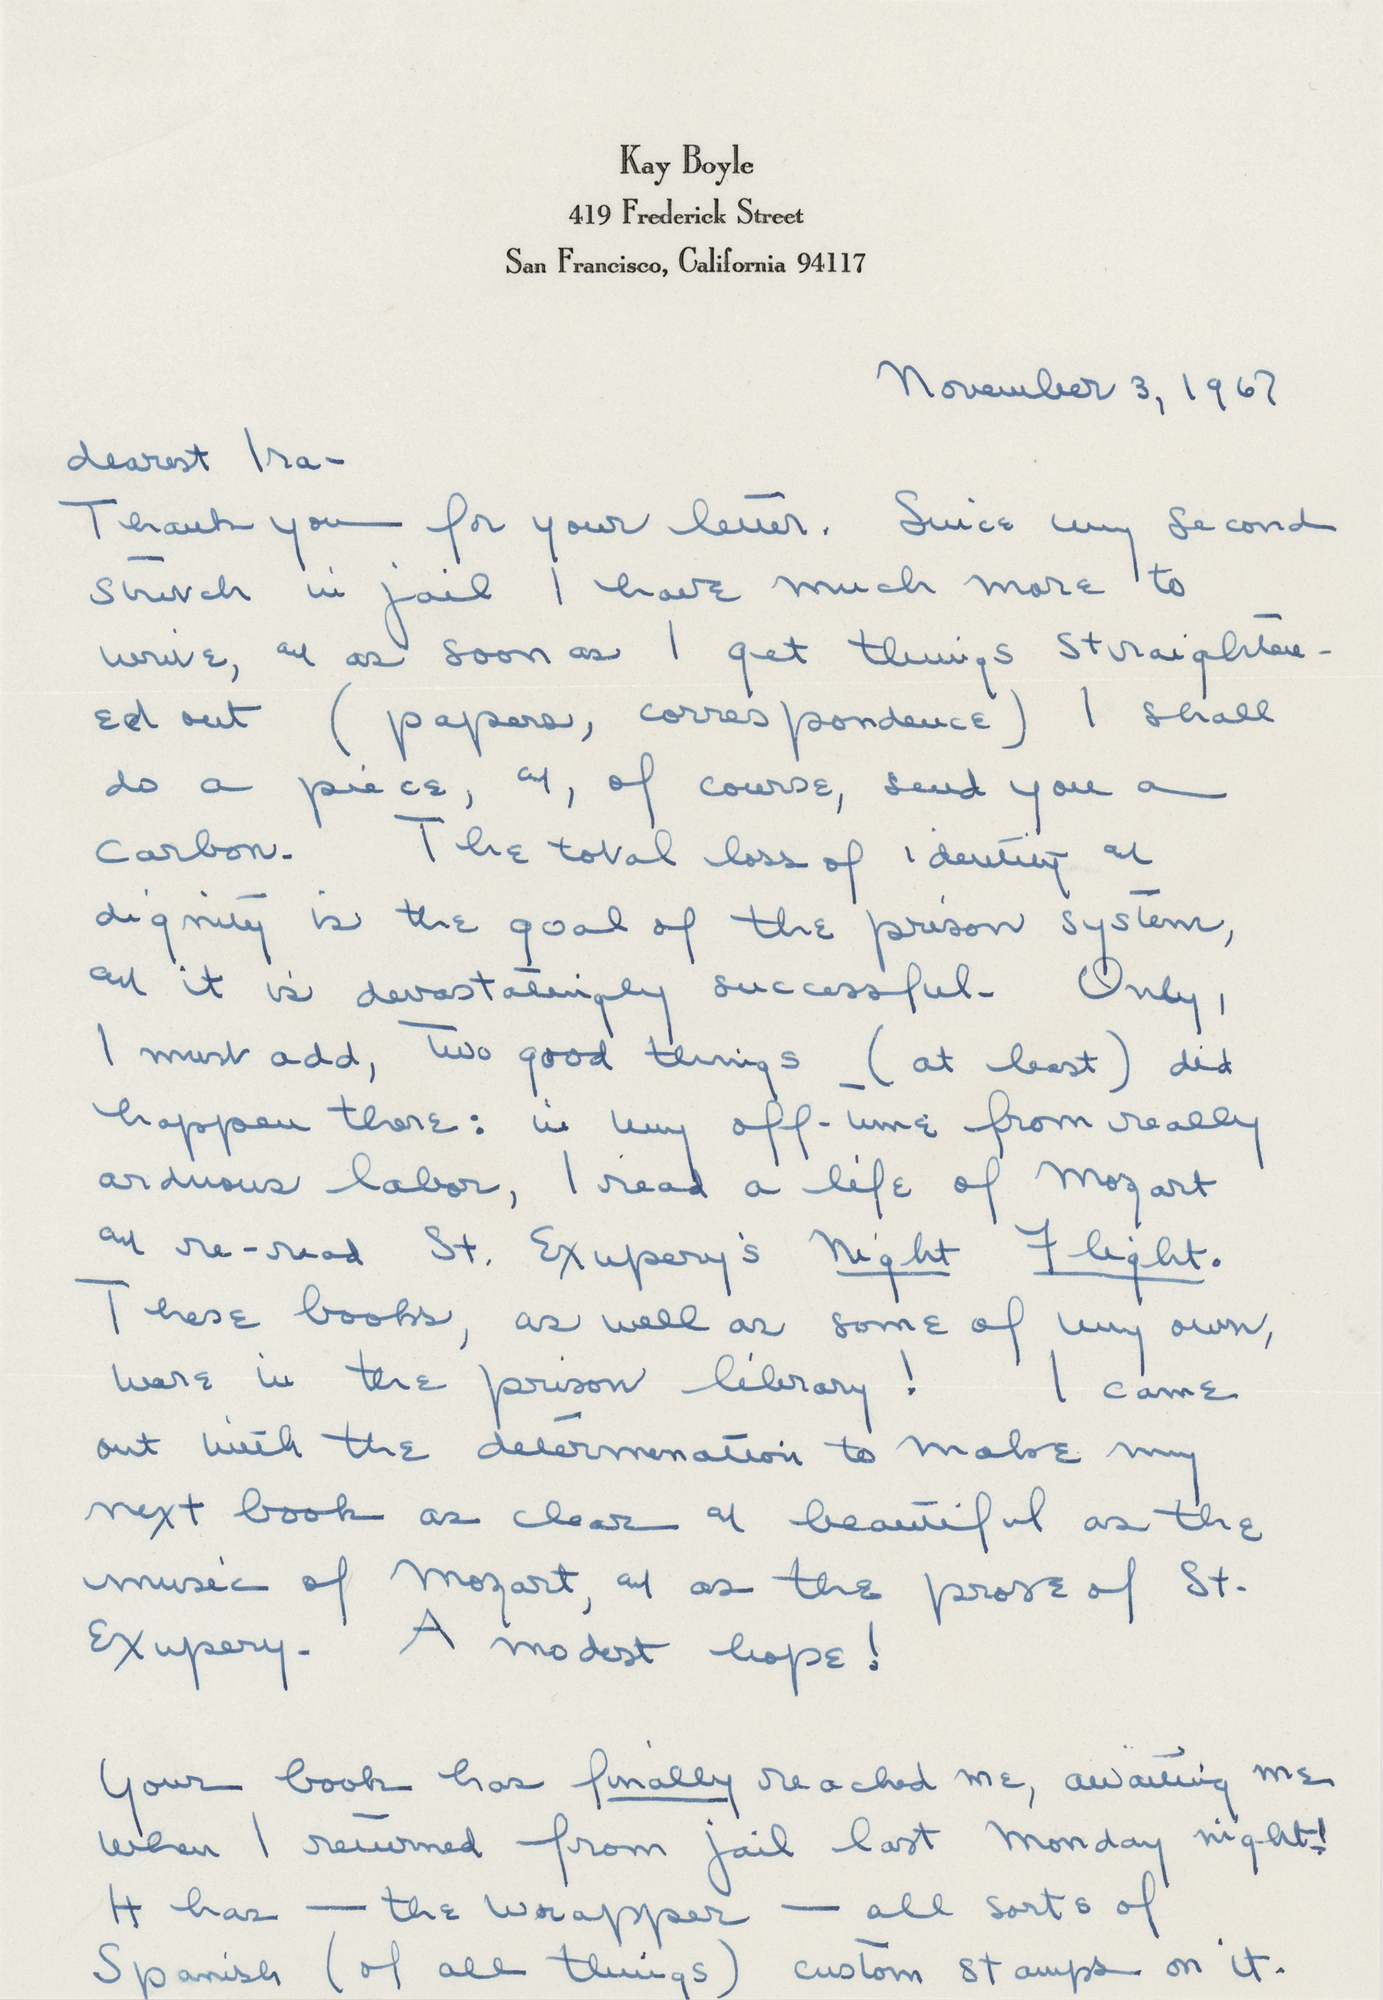 Kay Boyle
419 Frederick Street
San Francisco, California 94117
November 3, 1967
dearest Ira-
Thank you for your letter. Since my second
stretch in jail I have much more to
write, and as soon as I get things straighten-
ed out (papers, correspondence) I shall
do a piece, and, of course, send you a
carbon. The total loss of identity and
dignity is the goal of the prison system,
and it is devastatingly successful. Only,
I must add, two good things (at least) did
happen there: in my off-time from really
arduous labor, I read a life of Mozart
and re-read St. Exupery's Night Flight.
These books, as well as some of my own,
were in the prison library! I came
out with the determination to make my
next book as clear and beautiful as the
music of Mozart, and as the prose of St.
Exupery. A modest hope!
Your book has finally reached me, awaiting me
when I returned from jail last Monday night!
It has — the wrapper — all sorts of
Spanish (of all things) custom stamps on it.